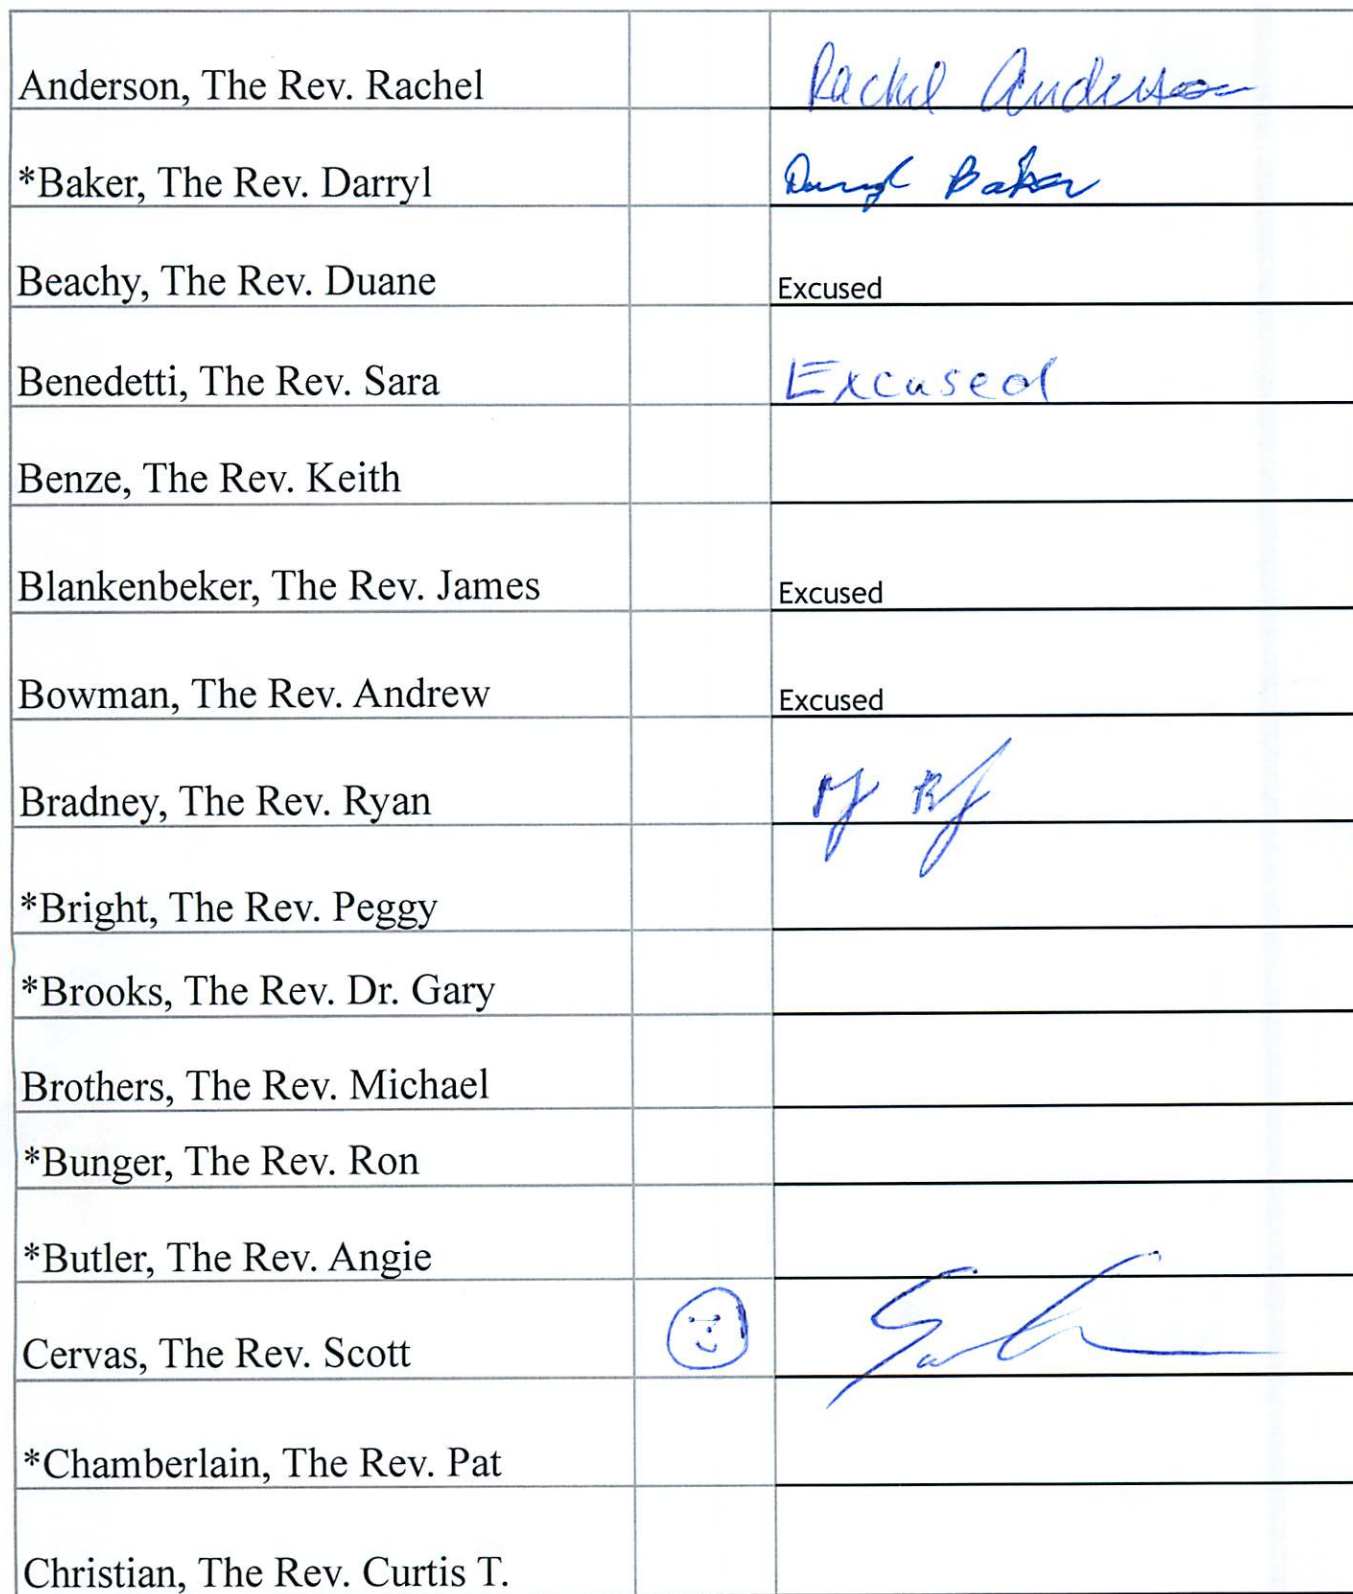 Anderson, The Rev. Rachel Rachel Anderson
*Baker, The Rev. Darryl Darryl Baker
Beachy, The Rev. Duane Excused
Benedetti, The Rev. Sara Excused
Benze, The Rev. Keith
Blankenbeker, The Rev. James Excused
Bowman, The Rev. Andrew Excused
Bradney, The Rev. Ryan
*Bright, The Rev. Peggy
*Brooks, The Rev. Dr. Gary
Brothers, The Rev. Michael
*Bunger, The Rev. Ron
*Butler, The Rev. Angie
Cervas, The Rev. Scott
*Chamberlain, The Rev. Pat
Christian, The Rev. Curtis T.